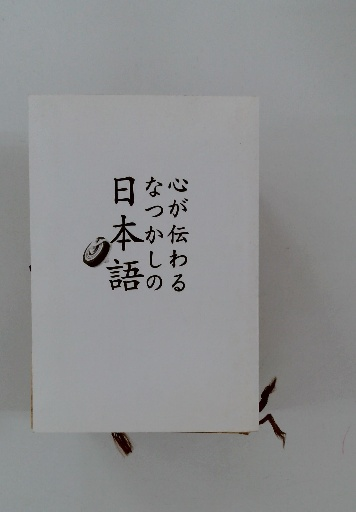 心が伝わる
なつかしの
日本語